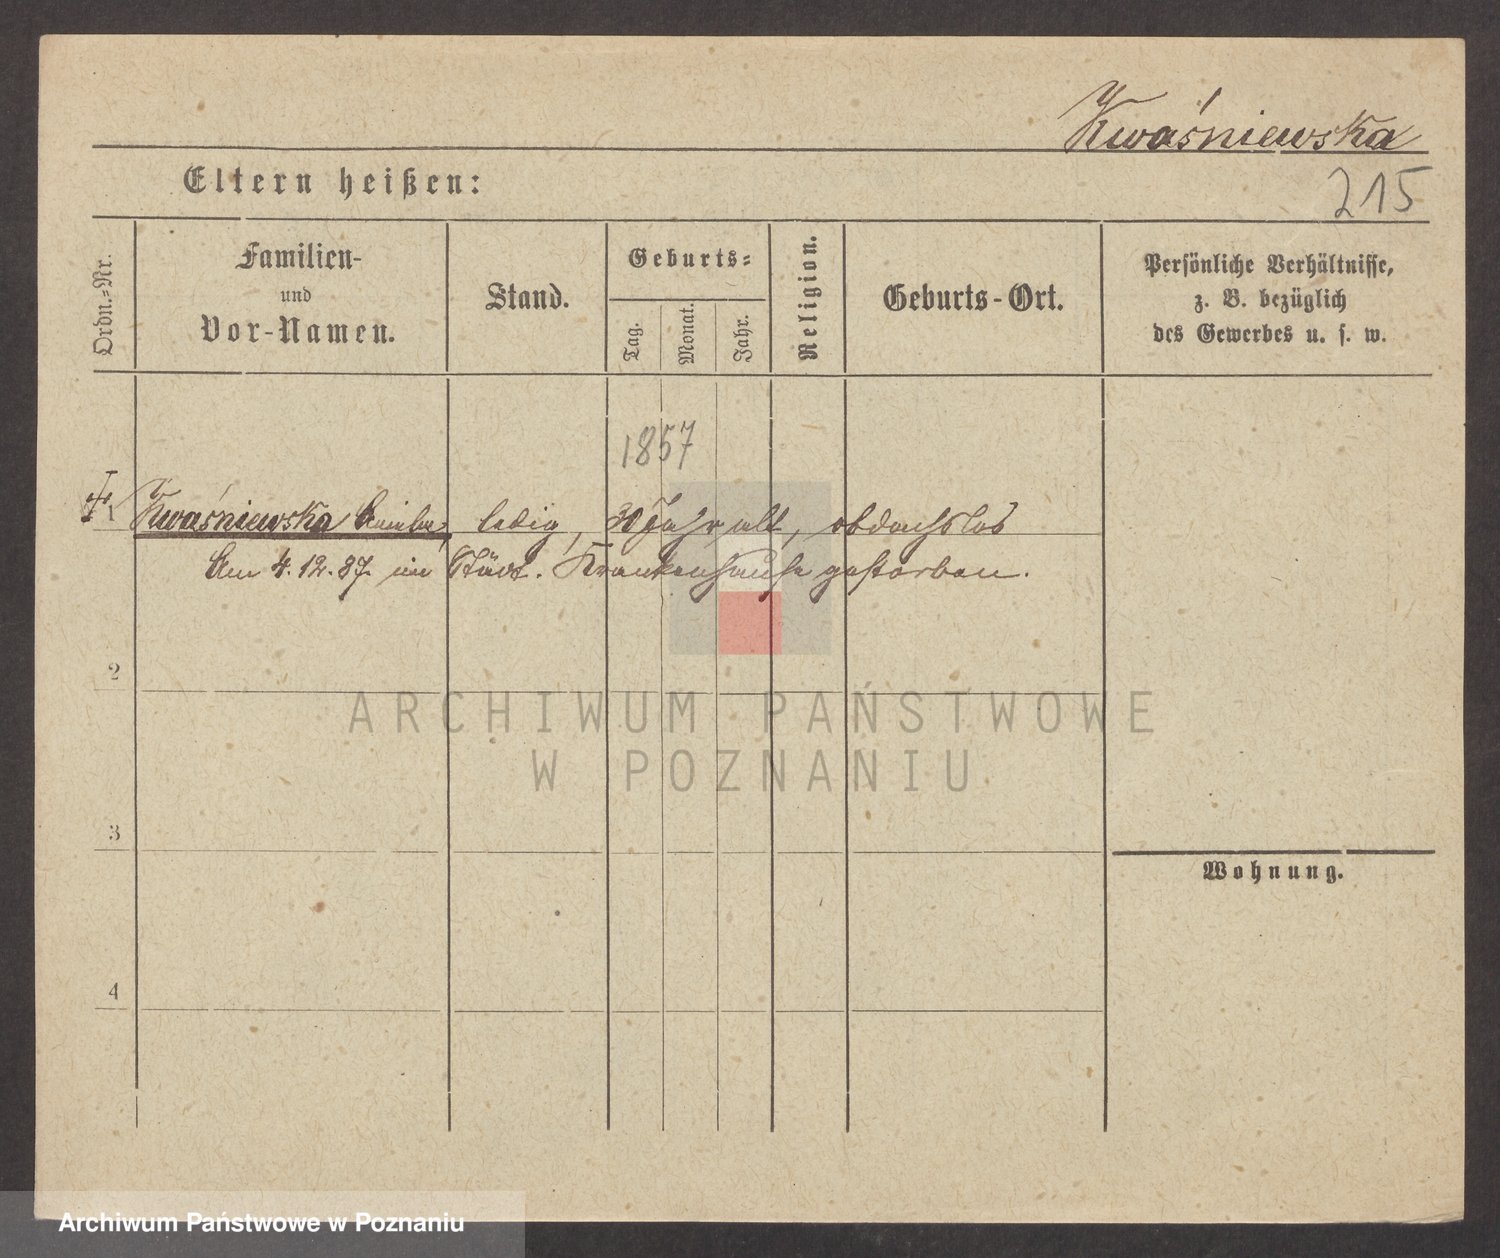 Kwaśniewska
Eltern heißen:
215
Ordn.-Nr.
Familien-
und
Vor-Namen.
Stand.
Geburts-
Tag.
Monat.
Jahr.
Religion.
Geburts-Ort.
Persönliche Verhältnisse,
z. B. bezüglich
des Gewerbes u. s. w.
1857
1 Kwaśniewska ledig, 30 Jahr alt, obdachslos
Am 4.12.87. im Städt. Krankenhause gestorben.
2
ARCHIWUM PAŃSTWOWE
W POZNANIU
3
Wohnung.
4
Archiwum Państwowe w Poznaniu